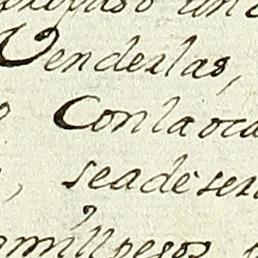 Venderlas,
Conlaoca
, seadeser
mill pesos